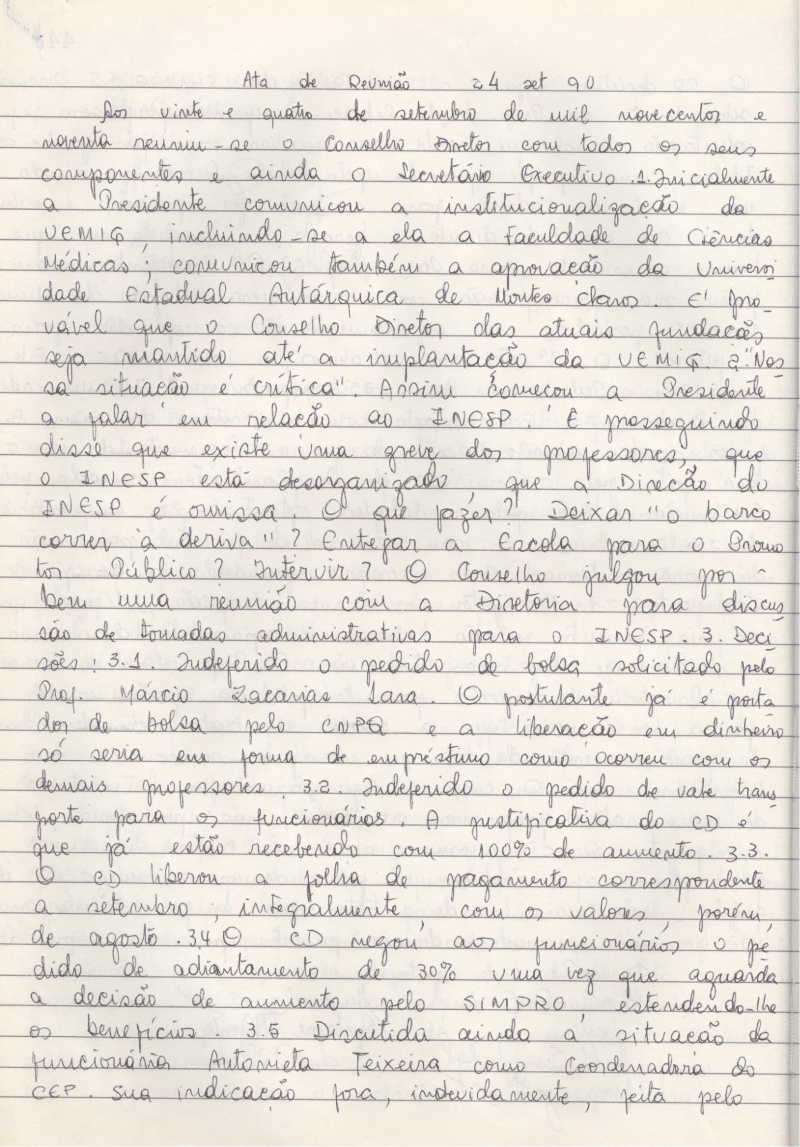 Ata de Reunião 24 set 90
Aos vinte e quatro de setembro de mil novecentos e
noventa reuniu-se o Conselho Diretor com todos os seus
componentes e ainda o Secretário Executivo. 1. Inicialmente
a Presidente comunicou a institucionalização da
UEMIG, incluindo-se a ela a Faculdade de Ciências
Médicas; comunicou também a aprovacão da Universi
dade Estadual Autárquica de Montes Claros. E' pro-
vável que o Conselho Diretor das atuais fundacões
seja mantido até a implantação da UEMIG. 2. "Nos
sa situação é crítica". Assim começou a Presidente
a falar em relação ao INESP. E prosseguindo
disse que existe uma greve dos professores, que
o INESP está desorganizado, que a Direcão do
INESP é omissa. O que fazer? Deixar "o barco
correr à deriva"? Entregar a Escola para o Promo
tor Público? Intervir? O Conselho julgou por
bem uma reunião com a Diretoria para discus
são de tomadas administrativas para o INESP. 3. Deci
sões: 3.1. Indeferido o pedido de bolsa solicitado pelo
Prof. Márcio Zacarias Lara. O postulante já é porta
dor de bolsa pelo CNPQ e a liberação em dinheiro
só seria em forma de empréstimo como ocorreu com os
demais professores. 3.2. Indeferido o pedido de vale trans
porte para os funcionários. A justificativa do CD é
que já estão recebendo com 100% de aumento. 3.3.
O CD liberou a folha de pagamento correspondente
a setembro, integralmente, com os valores, porém,
de agosto. 3.4 O CD negou aos funcionários o pe
dido de adiantamento de 30% uma vez que aguarda
a decisão de aumento pelo SIMPRO, estendendo-lhe
os benefícios. 3.5 Discutida ainda a situacão da
funcionária Antonieta Teixeira como Coordenadora do
CEP. Sua indicação fora, indevidamente, feita pelo